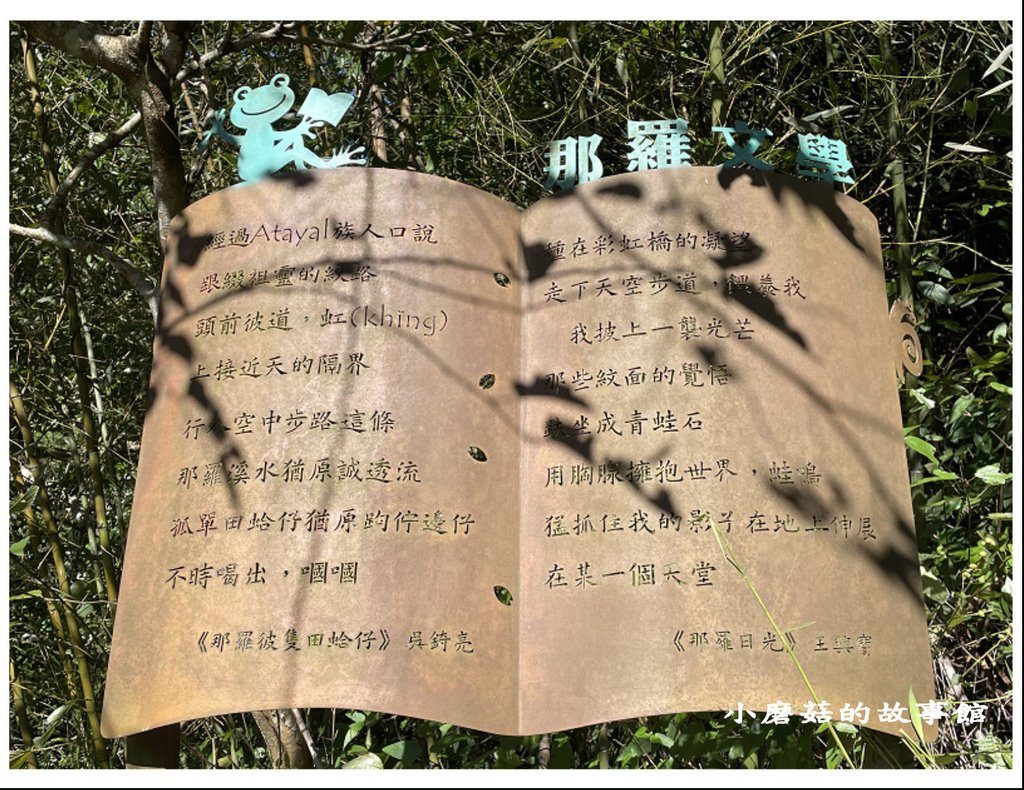 那羅文學
經過Atayal族人口說
跟綴祖靈的紋路
頭前彼道。虹(khīng)
上接近天的隔界
行 空中步路這條
那羅溪水猶原誠透流
孤單田蛤仔猶原趵佇邊仔
不時喝出，嘓嘓
《那羅彼隻田蛤仔》 吳錡亮
種在彩虹橋的凝望
走下天空步道，餵養我
我披上一襲光芒
那些紋面的覺悟
坐成青蛙石
用胸腺擁抱世界，蛙鳴
猛抓住我的影子在地上伸展
在某一個天堂
《那羅日光》 王興寶
小磨菇的故事館